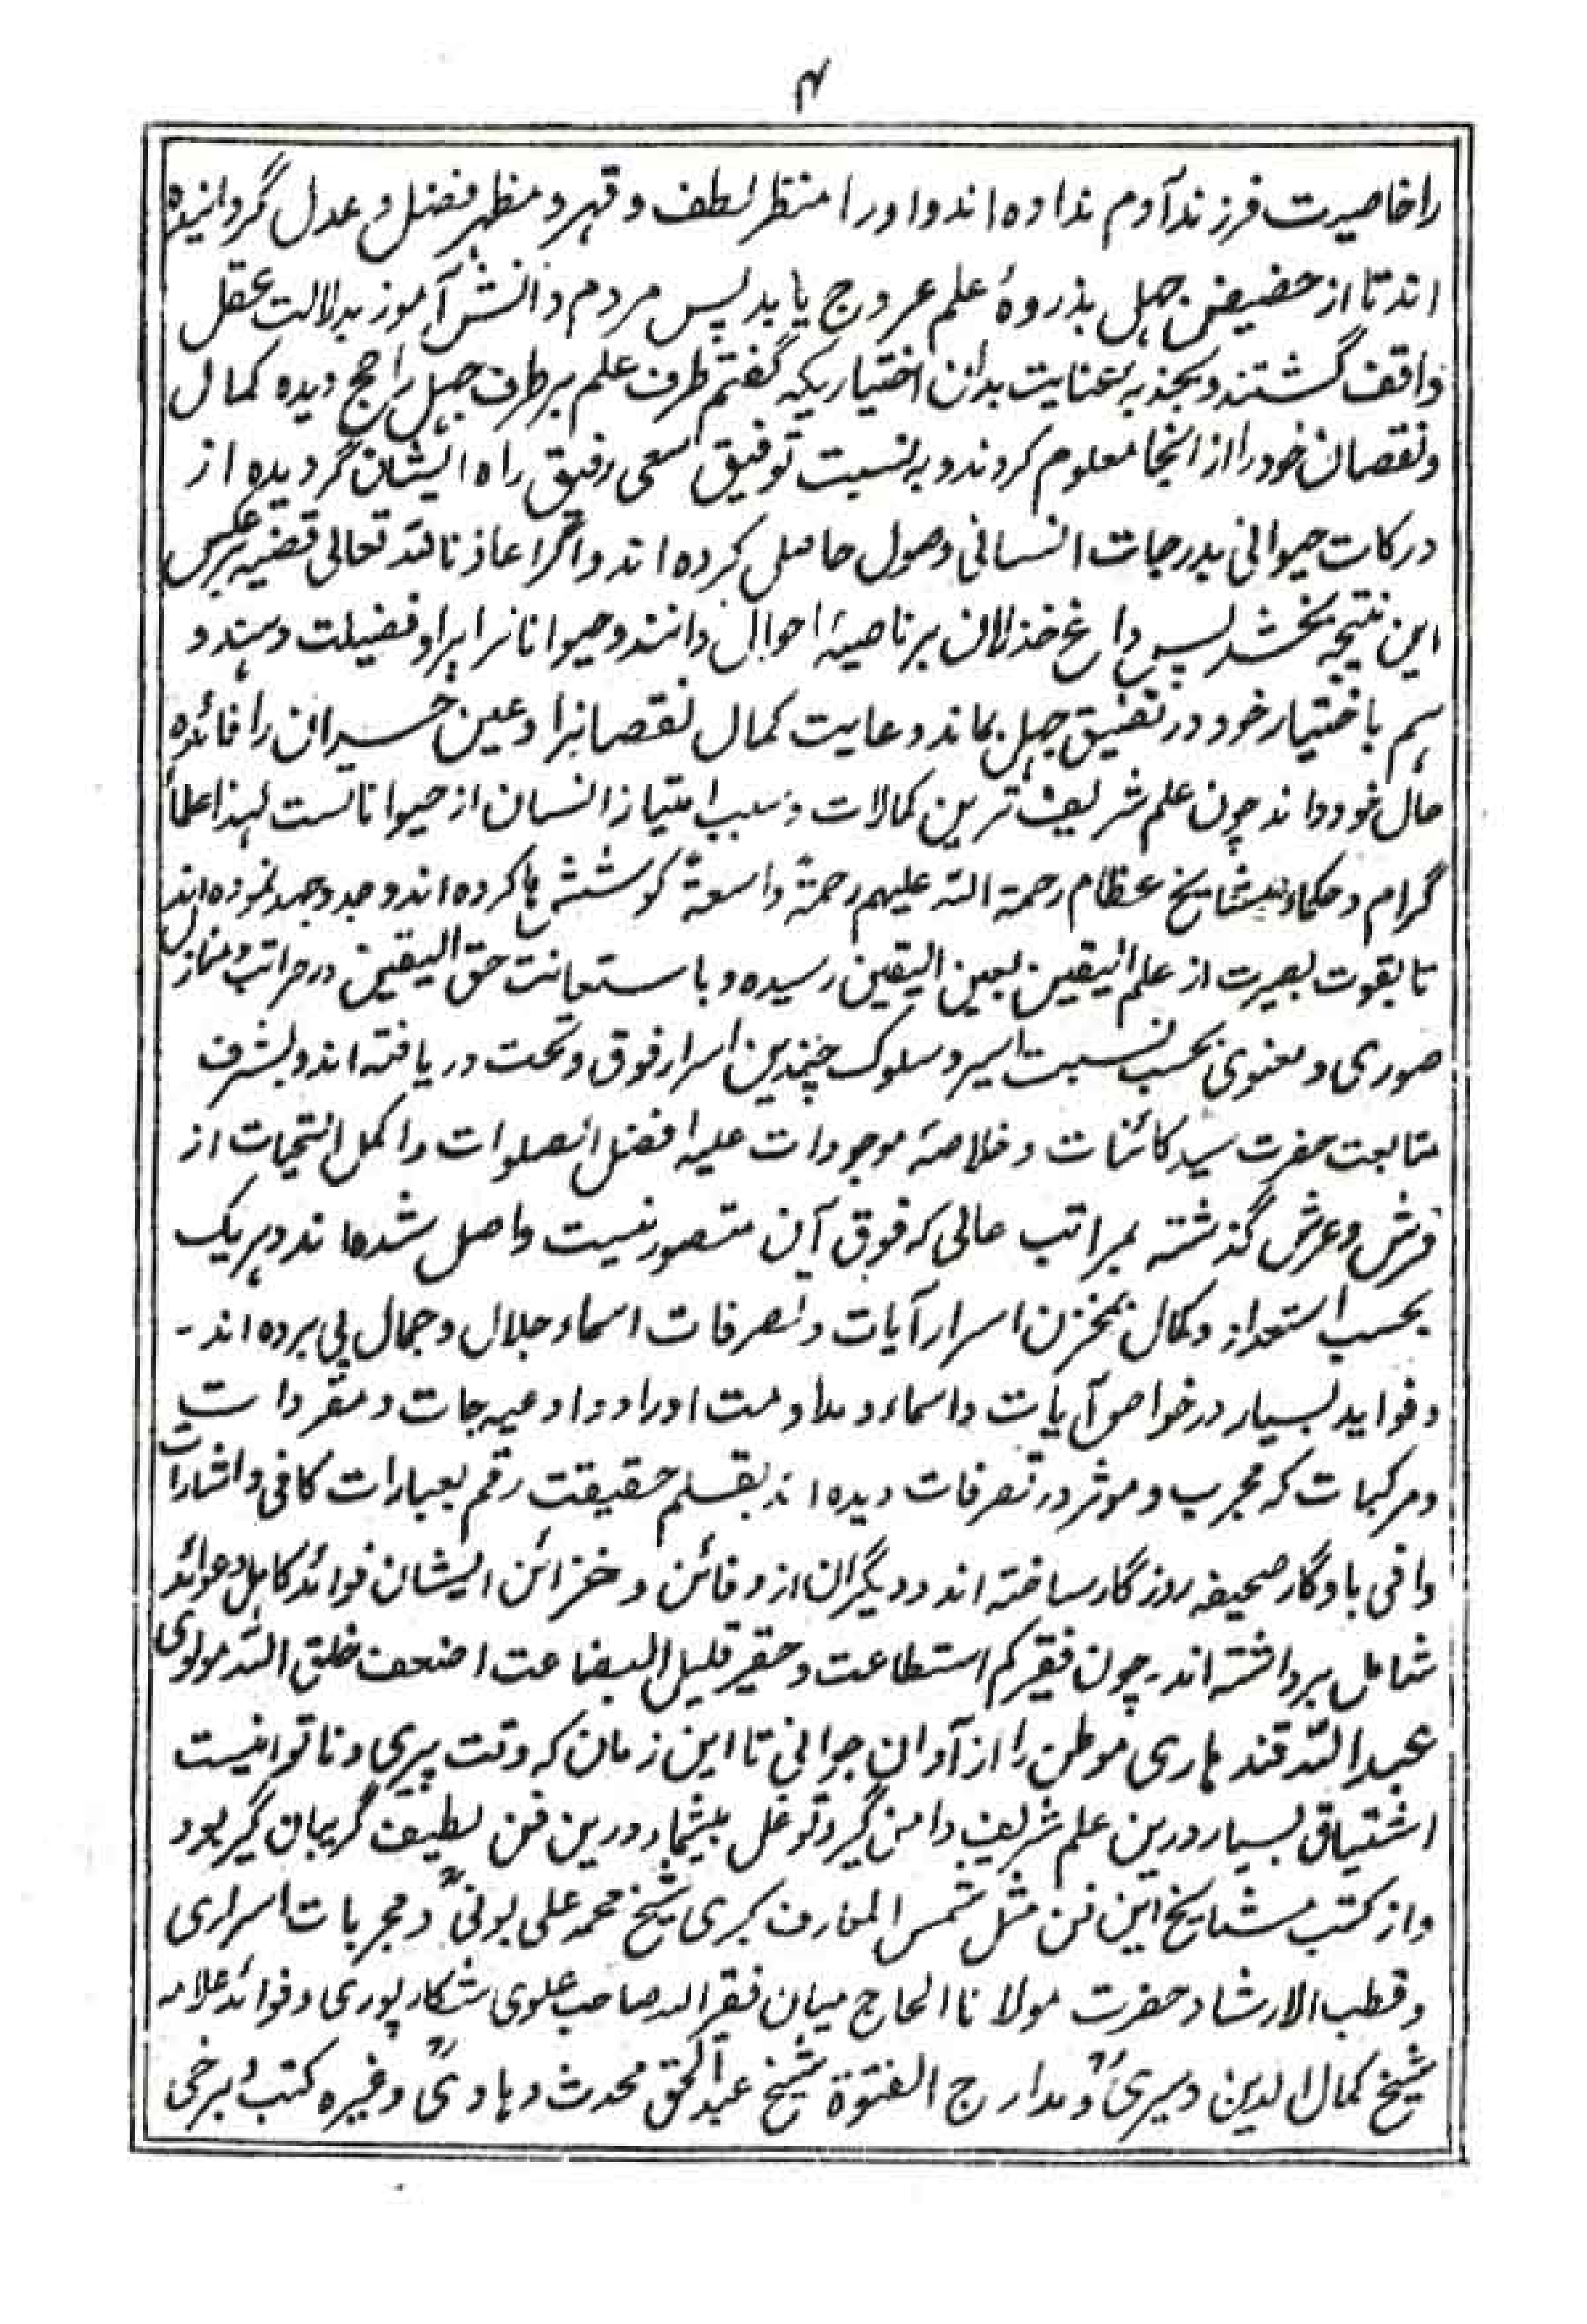 ۴
را خاصیت فرزند آدم نداده اند و او را منظر لطف و قهر و مظهر فضل و عدل گردانیده
اند تا از حضیض جهل بذروهٔ علم عروج یابد پس مردم دانش آموز بدلالت عقل
واقف گشتند و بجذبه عنایت بدان اختیاریکه گفتم طرف علم بر طرف جهل راجح دیده کمال
و نقصان خود را از اینجا معلوم کردند و به نسبت توفیق سعی رفیق راه ایشان گردیده از
درکات حیوانی بدرجات انسانی وصول حاصل کرده اند و اگر اعاذنا الله تعالی قضیه برعکس
این نتیجه بخشد پس داغ خذلان بر ناصیهٔ احوال دانند و حیوانانرا براو فضیلت دهند و
هم باختیار خود در تضیق جهل بماند و عایت کمال نقصانرا و عین خسران را فائده
حال خود داند چون علم شریف ترین کمالات و سبب امتیاز انسان از حیواناتست لهذا علماء
گرام و حکماء و مشایخ عظام رحمة الله علیهم رحمةً واسعةً کوشش ها کرده اند و جد و جهد نموده اند
تا بقوت بصیرت از علم الیقین بعین الیقین رسیده و با ستعانت حق الیقین در مراتب و منازل
صوری و معنوی بحسب نسبت سیر و سلوک چندین اسرار فوق و تحت دریافته اند و بشرف
متابعت حضرت سید کائنات و خلاصهٔ موجودات علیه افضل الصلوات و اکمل التحیات از
فرش و عرش گذشته بمراتب عالی که فوق آن متصور نیست واصل شده اند و هر یک
بحسب استعداد و کمال بمخزن اسرار آیات و تصرفات اسماء جلال و جمال پی برده اند -
و فواید بسیار در خواص آیات و اسماء و مداومت اوراد و ادعیه جات و مفردات
و مرکبات که مجرب و موثر در تصرفات دیده اند بقلم حقیقت رقم بعبارات کافی و اشارات
وافی یادگار صحیفه روزگار ساخته اند و دیگران از دفائن و خزائن ایشان فوائد کامل و عوائد
شامل برداشته اند - چون فقیر کم استطاعت و حقیر قلیل البضاعت اضعف خلق الله مولوی
عبدالله قندهاری موطن را از آوان جوانی تا این زمان که وقت پیری و ناتوانیست
اشتیاق بسیار درین علم شریف دامن گیر و توغل بیشمار درین فن لطیف گریبان گیر بود
و از کتب مشایخ این فن مثل شمس المعارف کبری شیخ محمد علی بونیؒ و مجربات اسراری
و قطب الارشاد حضرت مولانا الحاج میان فقرالله صاحب علوی شکارپوری و فوائد علامه
شیخ کمال الدین دمیریؒ و مدارج الفتوة شیخ عبدالحق محدث دهلویؒ و غیره کتب برخی